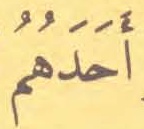 أَحَدَهُمُ